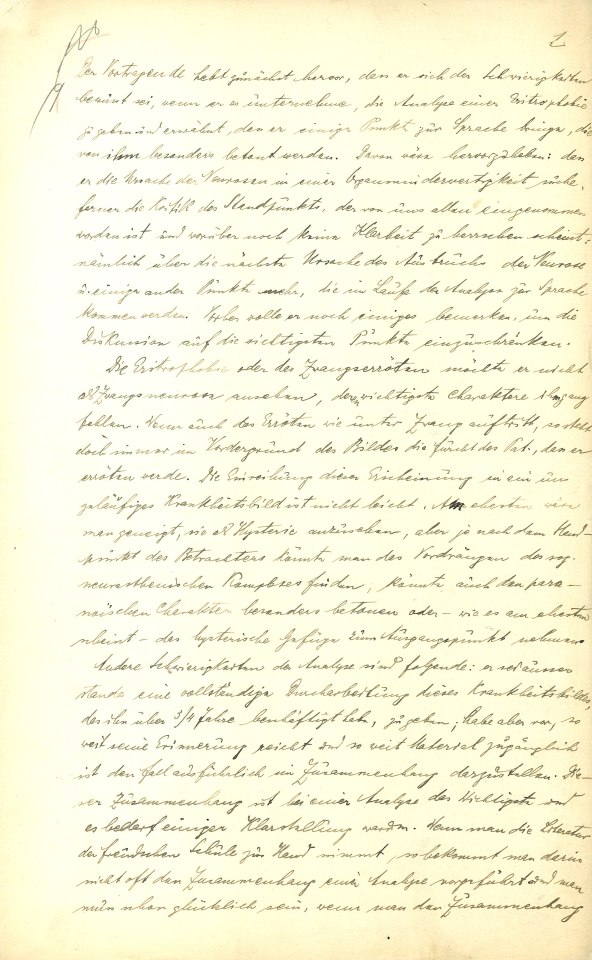 1
Der Vortragende hebt zunächst hervor, dass er sich der Schwierigkeiten
bewusst sei, wenn er es unternehme, die Analyse einer Eritrophobie
zu geben und erwähnt, dass er einige Punkte zur Sprache bringe, die
von ihm besonders betont werden. Davon wäre hervorzuheben: dass
er die Ursache der Neurosen in einer Organminderwertigkeit suche,
ferner die Kritik des Standpunkts, der von uns allen eingenommen
worden ist und worüber noch keine Klarheit zu herrschen scheint:
nämlich über die nächste Ursache des Ausbruchs der Neurose
u. einige andre Punkte mehr, die im Laufe der Analyse zur Sprache
kommen werden. Vorher wolle er noch einiges bemerken, um die
Diskussion auf die wichtigsten Punkte einzuschränken.
Die Eritrophobie oder das Zwangserröten möchte er nicht
als Zwangsneurose ansehen, deren wichtigste Charaktere ihm zu
fehlen. Wenn auch das Erröten wie unter Zwang auftritt, so steht
doch immer im Vordergrund des Bildes die Furcht des Pat., dass er
erröten werde. Die Einreihung dieser Erscheinung in ein uns
geläufiges Krankheitsbild ist nicht leicht. Am ehesten wäre
man geneigt, sie als Hysterie anzusehen, aber je nach dem Stand-
punkt des Betrachters könnte man das Vordrängen des sog.
neurasthenischen Komplexes finden, könnte auch den para-
noischen Charakter besonders betonen oder – wie es am ehesten
scheint – das hysterische Gefüge zum Ausgangspunkt nehmen.
Andere Schwierigkeiten der Analyse sind folgende: er sei ausser
stande eine vollständige Durcharbeitung dieses Krankheitsbildes,
das ihn über 3/4 Jahre beschäftigt habe, zu geben; habe aber vor, so
weit seine Erinnerung reicht und so weit Material zugänglich
ist den Fall ausführlich im Zusammenhang darzustellen. Die-
ser Zusammenhang ist bei einer Analyse das Wichtigste und
es bedarf einiger Klarstellung werden. Wenn man die Literatur
der freudschen Schule zur Hand nimmt, so bekommt man darin
nicht oft den Zusammenhang einer Analyse vorgeführt und man
muss schon glücklich sein, wenn man den Zusammenhang